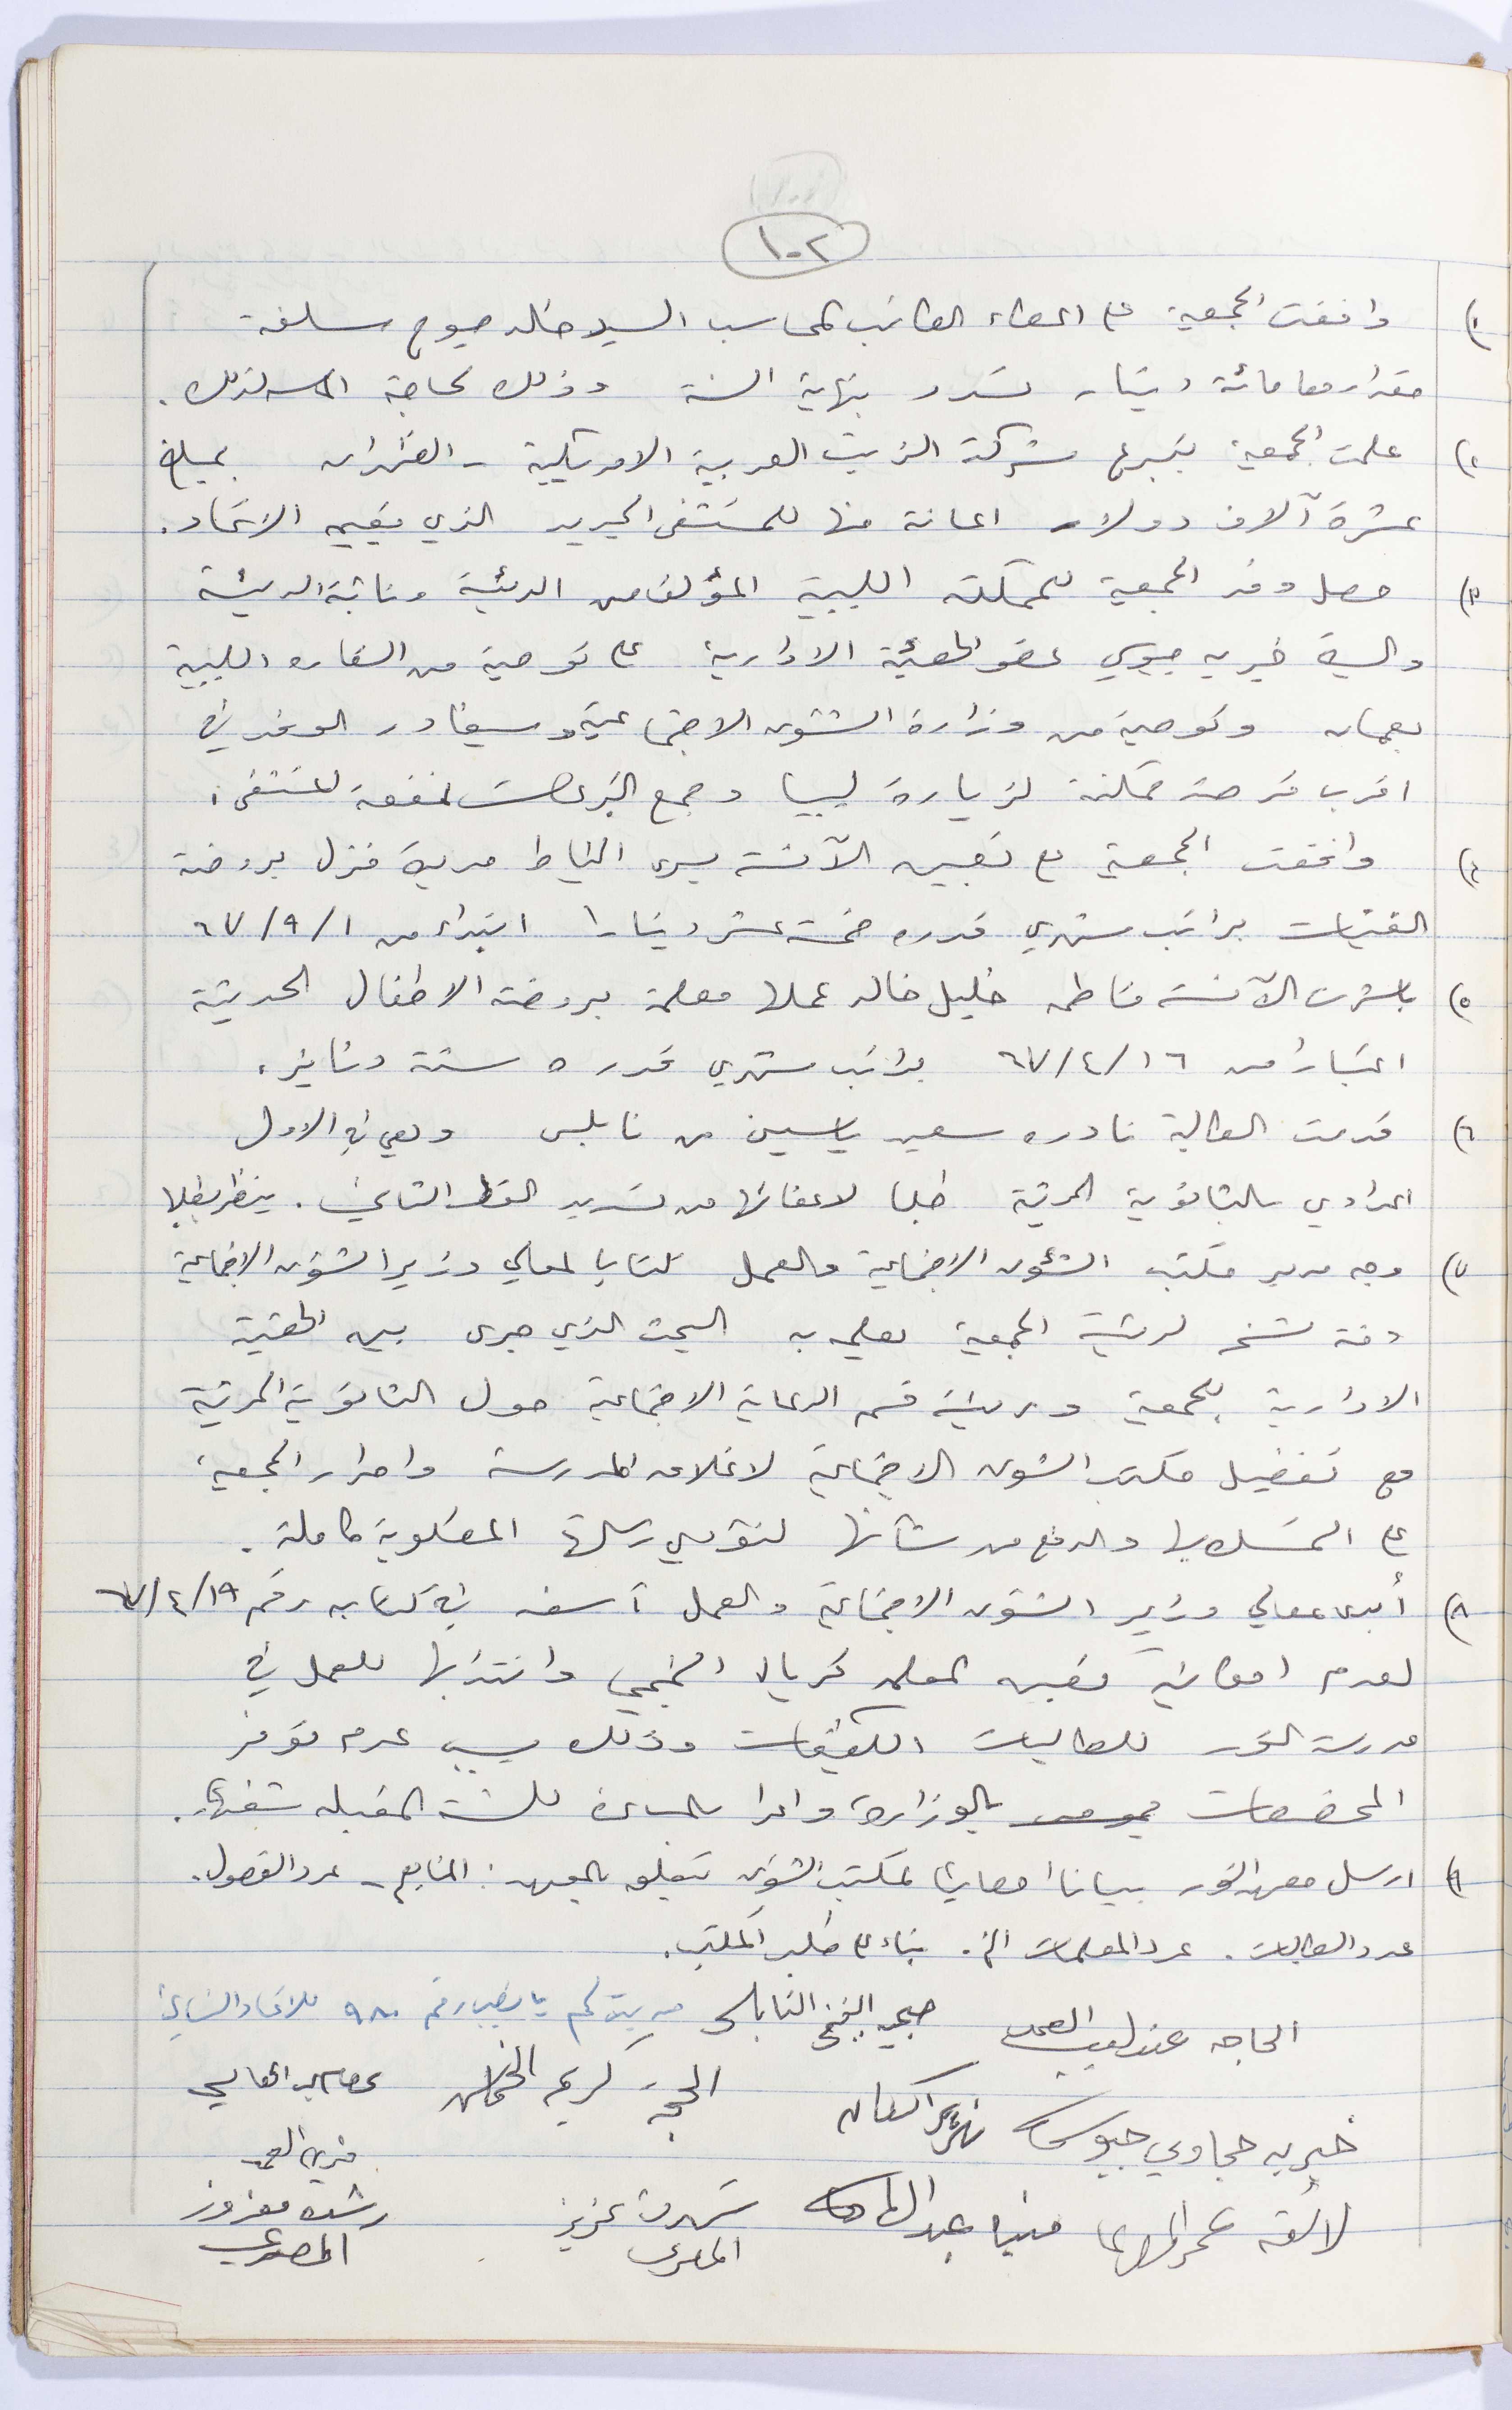 ١٠٢
١) وافقت الجمعية على اعطاء الكاتب المحاسب السيد خالد صبوح سلفة
مقدارها مائة دينار تسدد بنهاية السنة وذلك لحاجة الماسه لذلك.
٢) علمت الجمعية بتبرع شركة الزيت العربية الامريكية - الظهران بمبلغ
عشرة آلاف دولار اعانة منها للمستشفى الجديد الذي يقيمه الاتحاد.
٣) حصل وفد الجمعية للمملكة الليبية المؤلف من الرئيسة ونائبة الرئيسة
والسيدة خيريه جيوسي عضو الهيئة الادارية على توصية من السفاره الليبية
بعمان وتوصية من وزارة الشئون الاجتماعية وسيغادر الوفد في
اقرب فرصة ممكنة لزيارة ليبيا وجمع التبرعات لمنفعة المستشفى.
٤) وافقت الجمعية على تعيين الآنسة يسرى الخياط مدبرة منزل بروضة
الفتيات براتب شهري قدره خمسة عشر دينارا ابتداء من ٦٧/٩/١
٥) باشرت الآنسة فاطمه خليل خالد عملها معلمة بروضة الاطفال الحديثة
اعتبارا من ٦٧/٤/١٦ براتب شهري قدره ستة دنانير.
٦) قدمت الطالبة نادره سعيد ياسين من نابلس وهي في الاول
اعدادي بالثانوية المرتبة طلبا لاعفائها من تسديد القسط الثاني. ينظر بطلبها
٧) وجه مدير مكتب الشئون الاجتماعية والعمل كتابا لمعالي وزير الشئون الاجتماعية
ومنه نسخه لرئيسة الجمعية يعلمه به البحث الذي جرى بين الهيئة
الادارية للجمعية ورئيسة قسم الرعاية الاجتماعية حول الثانوية المرتبة
مع تفضيل مكتب الشئون الاجتماعية لاغلاق المدرسة واصرار الجمعية
على التمسك بها والرفع من شأنها لتؤدي رسالتها المطلوبة كاملة.
٨) أبدى معالي وزير الشئون الاجتماعية والعمل آسفه في كتابه رقم ٦٧/٤/١٩
لعدم امكانية تعيين المعلمه فريال النجمي وانتدابها للعمل في
مدرسة النور للطالبات الكفيفات وذلك بسبب عدم توفر
المخصصات بالوزارة واعدا بالمساعدة للسنة المقبله
٩) ارسل معهد النور بيانا احصائيا لمكتب الشئون يتعلق بالمعهد: المناهج - عدد الفصول.
عدد الطالبات. عدد المعلمات الخ. بناء على طلب المكتب.
الحاجه عندليب العمد صبحيه النابلسي رقم ٩٨٠ للاتحاد النسائي
خيريه حجاوي جيوسي الحجة كريمه
لائقه عبد الهادي عبد الهادي شهرت عزيز رشده معزوز
المصري المصري